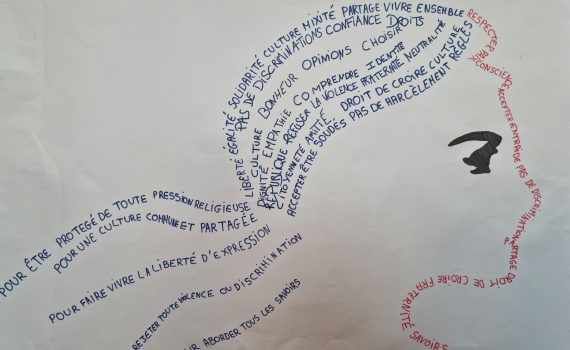 LIBERTÉ EGALITÉ SOLIDARITÉ CULTURE MIXITÉ PARTAGE VIVRE ENSEMBLE
PAS DE DISCRIMINATIONS CONFIANCE DROITS
CULTURE BONHEUR OPINIONS CHOISIR
DIGNITÉ EMPATHIE COMPRENDRE IDENTITÉ
RÉPUBLIQUE REFUSER LA VIOLENCE FRATERNITÉ NEUTRALITÉ
CITOYENNETÉ AMITIÉ DROIT DE CROIRE CULTURE
ACCEPTER ÊTRE SOUDÉS PAS DE HARCÈLEMENT RÈGLES
RESPECTER PAIX
CONSCIENCE
ACCEPTER ENTRAIDE PAS DE DISCRIMINATION PARTAGE
DROIT DE CROIRE FRATERNITÉ
SAVOIRS
POUR ÊTRE PROTEGÉ DE TOUTE PRESSION RELIGIEUSE
POUR UNE CULTURE COMMUNE ET PARTAGÉE
POUR FAIRE VIVRE LA LIBERTÉ D'EXPRESSION
REJETER TOUTE VIOLENCE OU DISCRIMINATION
ABORDER TOUS LES SAVOIRS